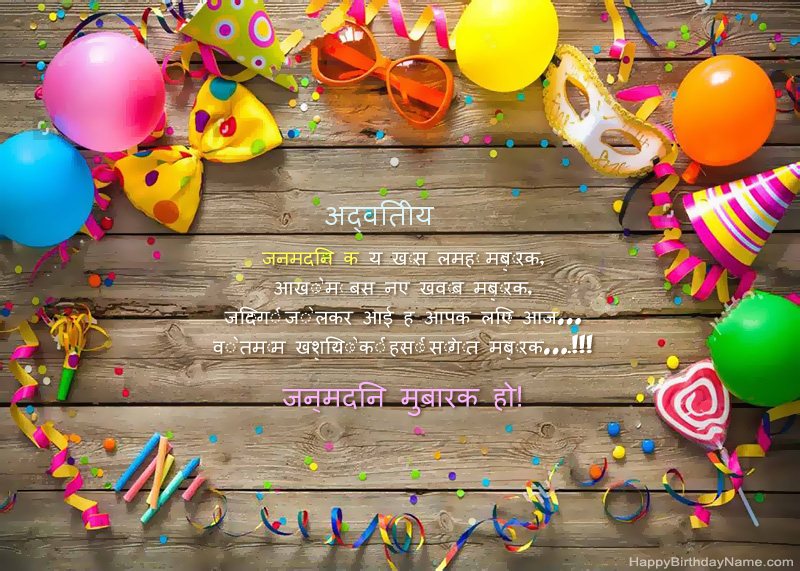 अद्वतिीय
जनमदनि क य खास लमह मबारक,
आखों म बस नए खवाब मबारक,
जदिंगी जो लेकर आई ह आपक लएि आज...
वो तमाम खशयिों की हसीं सौगात मबारक...!!!
जन्मदनि मुबारक हो!
HappyBirthdayName.com